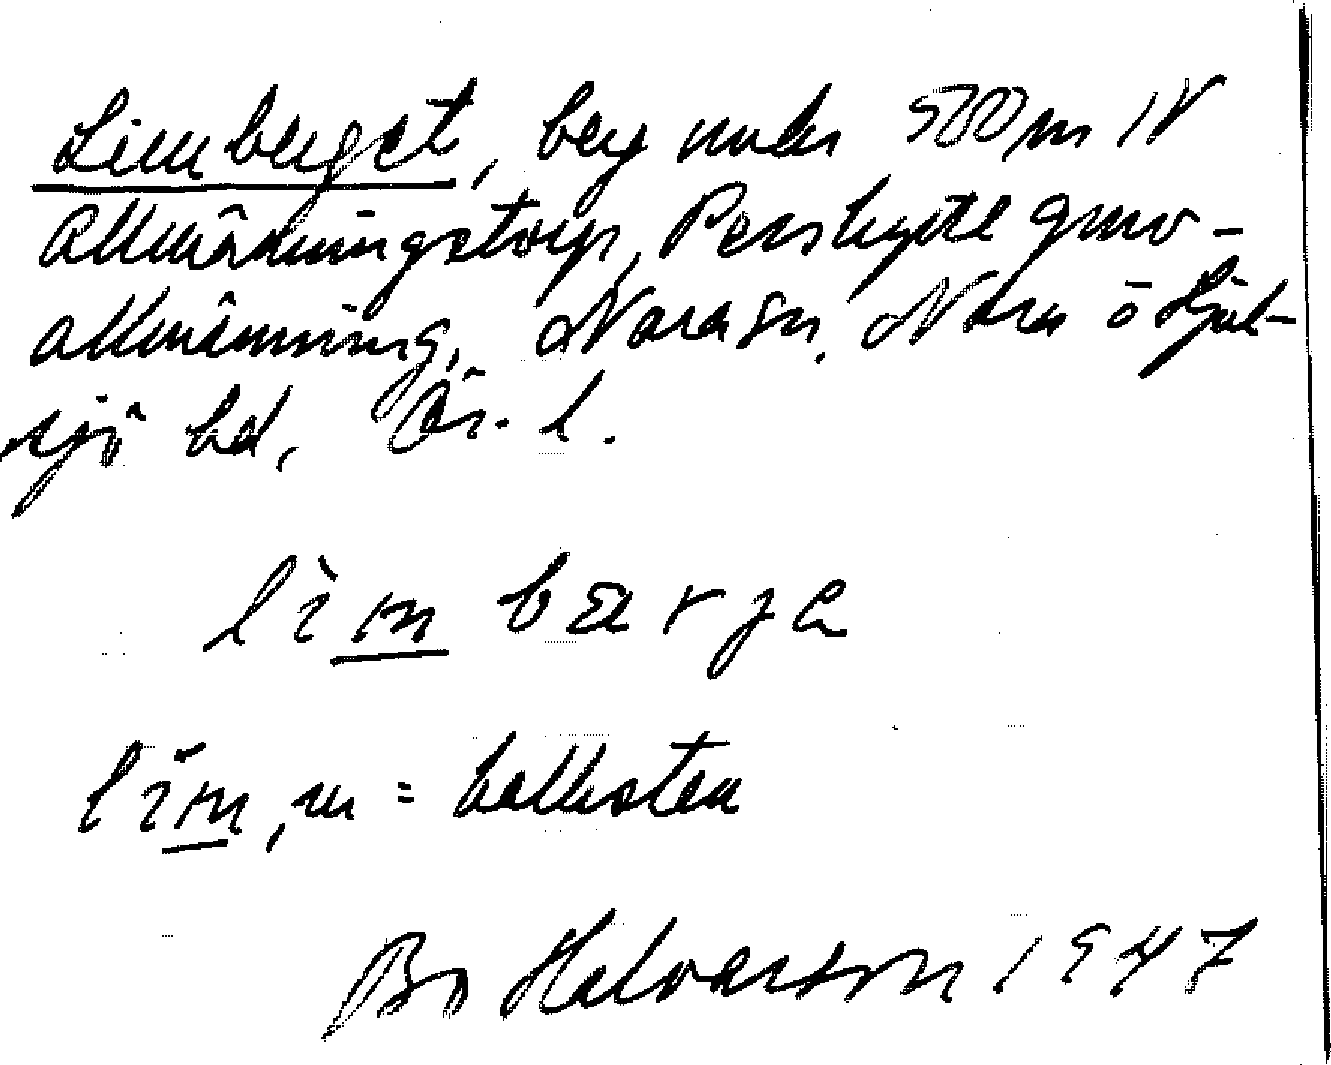 Limberget, berg under 500 m N
Allmänningstorp, Pershytte gruv-
allmänning, Nora sn, Nora o Hjul-
sjö bd, Ör. l.
lìm bærje
līm, m = kalksten
Bo Halvarson 1947